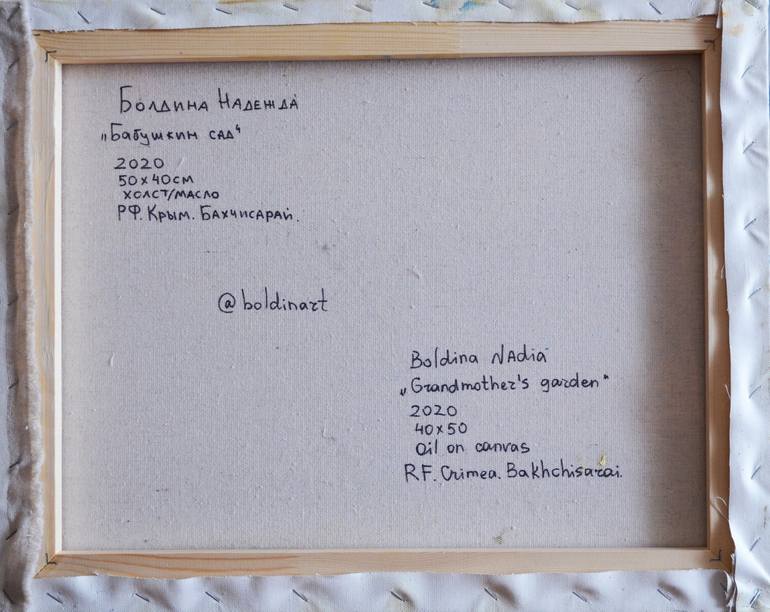 Болдина Надежда
„Бабушкин сад"
2020
50x40см
холст/масло
РФ. Крым. Бахчисарай.
@boldinart
Boldina Nadia
„Grandmother's garden"
2020
40x50
Oil on canvas
RF. Crimea. Bakhchisarai.